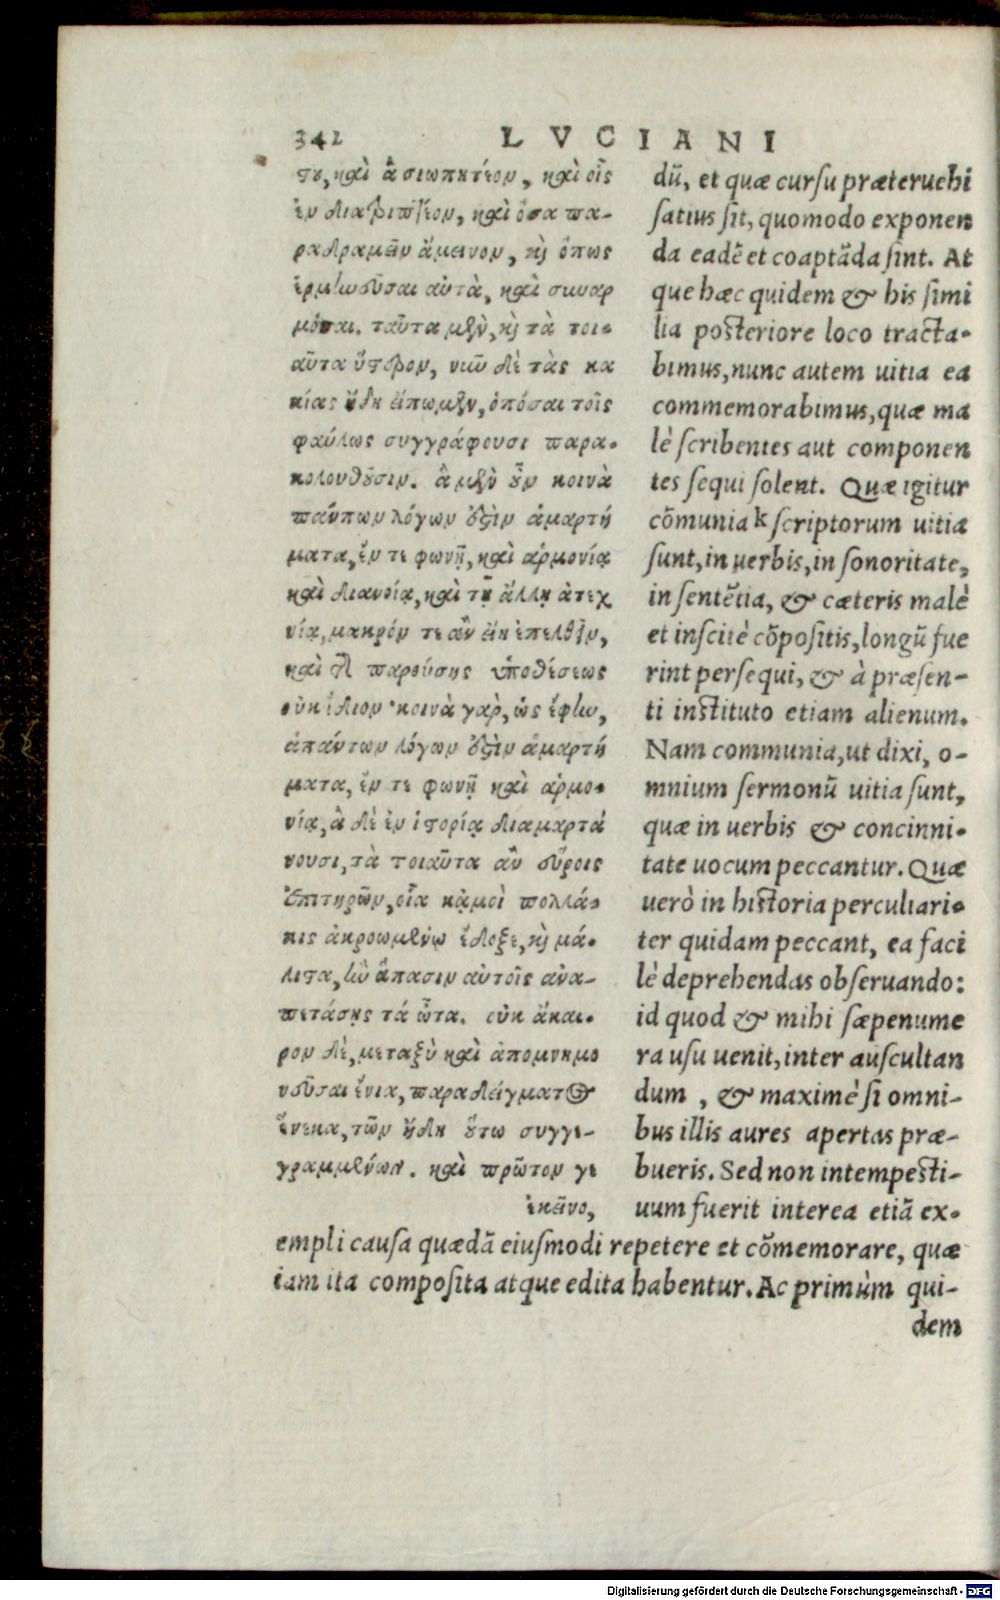 342 LVCIANI
τε, καὶ ἃ σιωπητέον, καὶ οἷς
ἐν διατριπτέον, καὶ ὅσα πα-
ραδραμεῖν ἄμεινον, κὶ ὅπως
ἑρμηνεῦσαι αὐτὰ, καὶ συναρ
μόσαι. ταῦτα μὲν, κὶ τὰ τοι-
αῦτα ὕστερον, νῦν δὲ τὰς κα
κίας ἤδη εἴπωμεν, ὁπόσαι τοῖς
φαύλως συγγράφουσι παρα-
κολουθοῦσιν. ἃ μὲν οὖν κοινὰ
πάντων λόγων ἐστὶν ἁμαρτή
ματα, ἔν τε φωνῇ, καὶ ἁρμονίᾳ
καὶ διανοίᾳ, καὶ τῇ ἄλλῃ ἀτεχ
νίᾳ, μακρόν τε ἂν εἴη ἐπελθεῖν,
καὶ τῆς παρούσης ὑποθέσεως
οὐκ ἴδιον· κοινὰ γὰρ, ὡς ἔφην,
ἁπάντων λόγων ἐστὶν ἁμαρτή
ματα, ἔν τε φωνῇ καὶ ἁρμο-
νίᾳ, ἃ δὲ ἐν ἱστορίᾳ διαμαρτά
νουσι, τὰ τοιαῦτα ἂν εὕροις
ἐπιτηρῶν, οἷα κἀμοὶ πολλά-
κις ἀκροωμένῳ ἔδοξε, κὶ μά-
λιστα, ἢν ἅπασιν αὐτοῖς ἀνα-
πετάσῃς τὰ ὦτα. οὐκ ἄκαι-
ρον δὲ, μεταξὺ καὶ ἀπομνημο
νεῦσαι ἔνια, παραδείγματος
ἕνεκα, τῶν ἤδη οὕτω συγγε-
γραμμένων. καὶ πρῶτόν γε
ἐκεῖνο,
dũ, et quæ cursu præteruehi
satius sit, quomodo exponen
da eadē et coaptãda sint. At
que hæc quidem & his simi
lia posteriore loco tracta-
bimus, nunc autem uitia ea
commemorabimus, quæ ma
lè scribentes aut componen
tes sequi solent. Quæ igitur
cõmunia k scriptorum uitia
sunt, in uerbis, in sonoritate,
in sentẽtia, & cæteris malè
et inscitè cõpositis, longũ fue
rint persequi, & à præsen-
ti instituto etiam alienum.
Nam communia, ut dixi, o-
mnium sermonũ uitia sunt,
quæ in uerbis & concinni-
tate uocum peccantur. Quæ
uerò in historia perculiari-
ter quidam peccant, ea faci
lè deprehendas obseruando:
id quod & mihi sæpenume
ra usu uenit, inter auscultan
dum , & maximè si omni-
bus illis aures apertas præ-
bueris. Sed non intempesti-
uum fuerit interea etiã ex-
empli causa quædã eiusmodi repetere et cõmemorare, quæ
iam ita composita atque edita habentur. Ac primùm qui-
dem
Digitalisierung gefördert durch die Deutsche Forschungsgemeinschaft - DFG